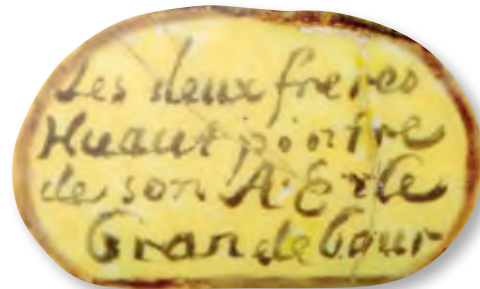 Les deux freres
Huaut pointre
de son A. Erle
Gran de Cour